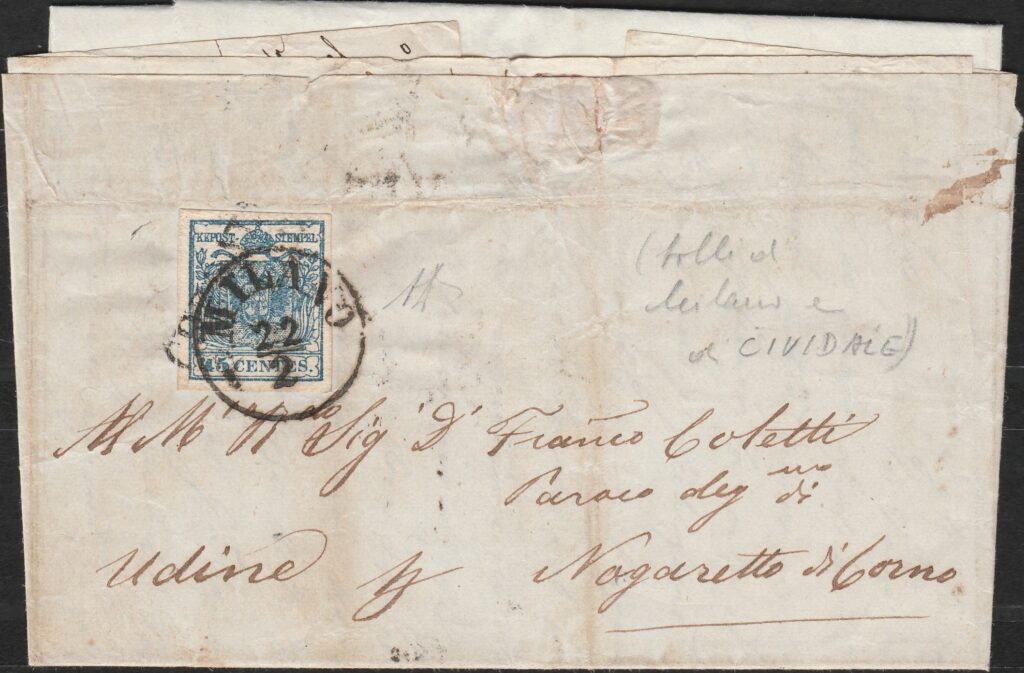 KKPOST-STEMPEL
MILANO
22
2
45 CENTES.
(bolli di
Milano e
di CIVIDALE)
Al M. R.do Sig. D. Franco Coletti
Paroco deg.mo di
Udine Nogaretto di Corno